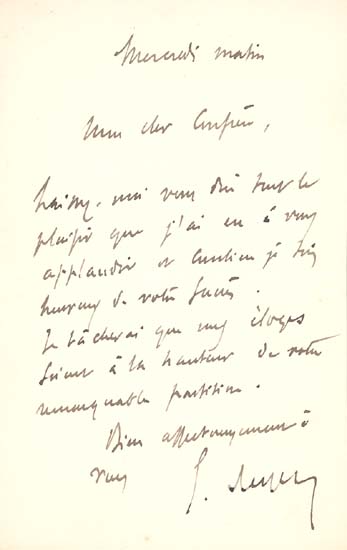 Mercredi matin
Mon cher Confrère,
Laissez-moi vous dire tout le
plaisir que j'ai eu à vous
applaudir et combien je suis
heureux de votre succès.
Je tâcherai que mes éloges
soient à la hauteur de votre
remarquable partition.
Bien affectueusement à
vous